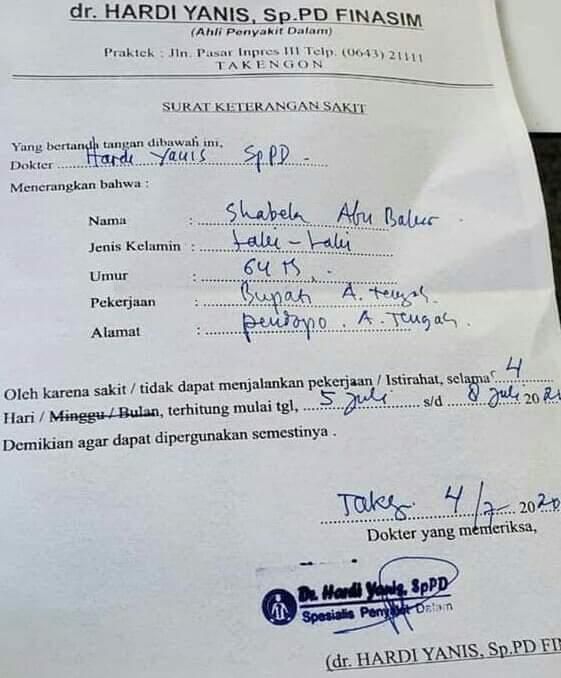 dr. HARDI YANIS, Sp.PD FINASIM
(Ahli Penyakit Dalam)
Praktek : Jln. Pasar Inpres III Telp. (0643) 21111
TAKENGON
SURAT KETERANGAN SAKIT
Yang bertanda tangan dibawah ini,
Dokter Hardi Yanis SpPD
Menerangkan bahwa :
Nama : Shabela Abu Bakar
Jenis Kelamin : Laki-Laki
Umur : 64 Th
Pekerjaan : Bupati A. Tengah.
Alamat : pendopo. A. Tengah.
Oleh karena sakit / tidak dapat menjalankan pekerjaan / Istirahat, selama 4
Hari / Minggu / Bulan, terhitung mulai tgl, 5 Juli s/d 8 Juli 202
Demikian agar dapat dipergunakan semestinya .
4/7 2020
Dokter yang memeriksa,
Dr. Hardi Yanis, SpPD
Spesialis Penyakit Dalam
(dr. HARDI YANIS, Sp.PD FIN